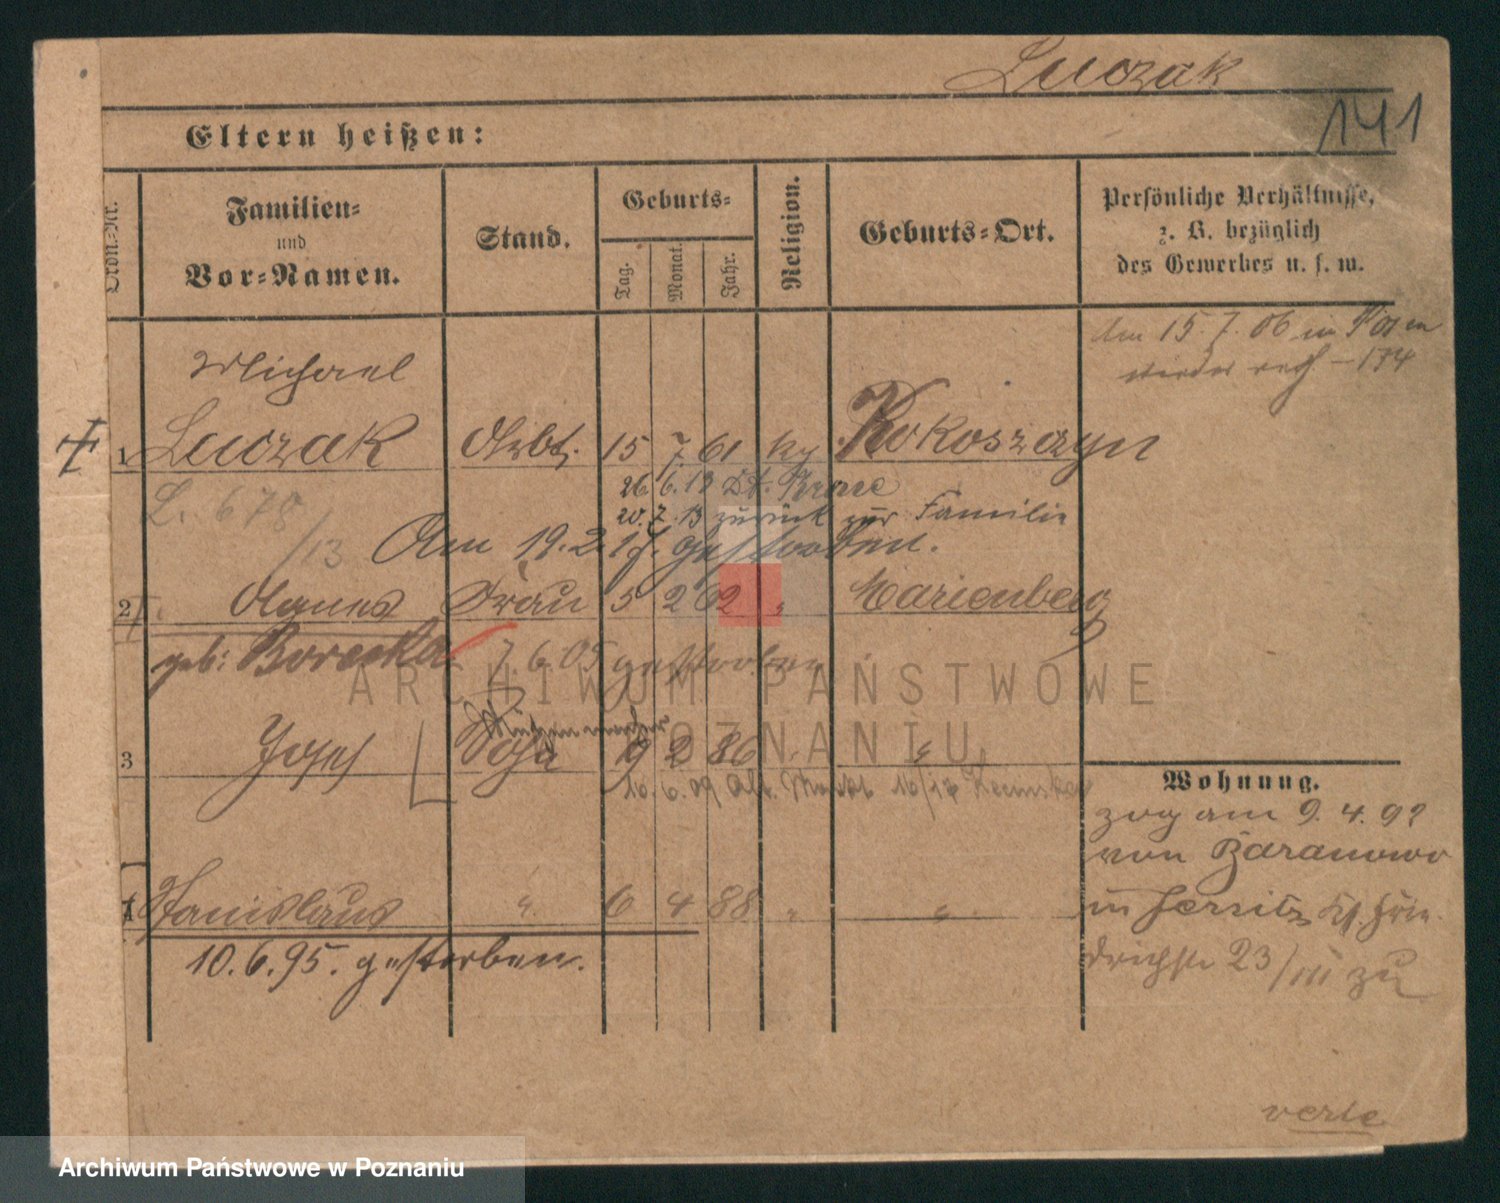 Luczak
141
Eltern heißen:
Ordn.-Nr.
Familien-
und
Vor-Namen.
Stand.
Geburts-
Tag.
Monat.
Jahr.
Religion.
Geburts-Ort.
Persönliche Verhältnisse,
z. B. bezüglich
des Gewerbes u. s. w.
den 15.7.06 in Posen
Michael
1 Luczak Arbt. 15 7. 61 Kokoszczyn
26 6. 13 Dt. Krone
L. 678/13
20. 7. 13 zurück zur Familie
Am 19.2.17. gestorben.
2 Agnes Frau 5 2 62 " Marienberg
geb: Borecka 7 6 05 gestorben
Mützenmacher
3 Josef Sohn 9 2 86 " "
10. 6. 09 Alt. Markt 16/17
4 Stanislaus " 6 4 88 " "
10.6.95. gestorben.
Wohnung.
zog am 9. 4. 92
von Baranowo
in Jersitz Frie-
drichstr 23/III zu
verte
ARCHIWUM PAŃSTWOWE
W POZNANIU
Archiwum Państwowe w Poznaniu